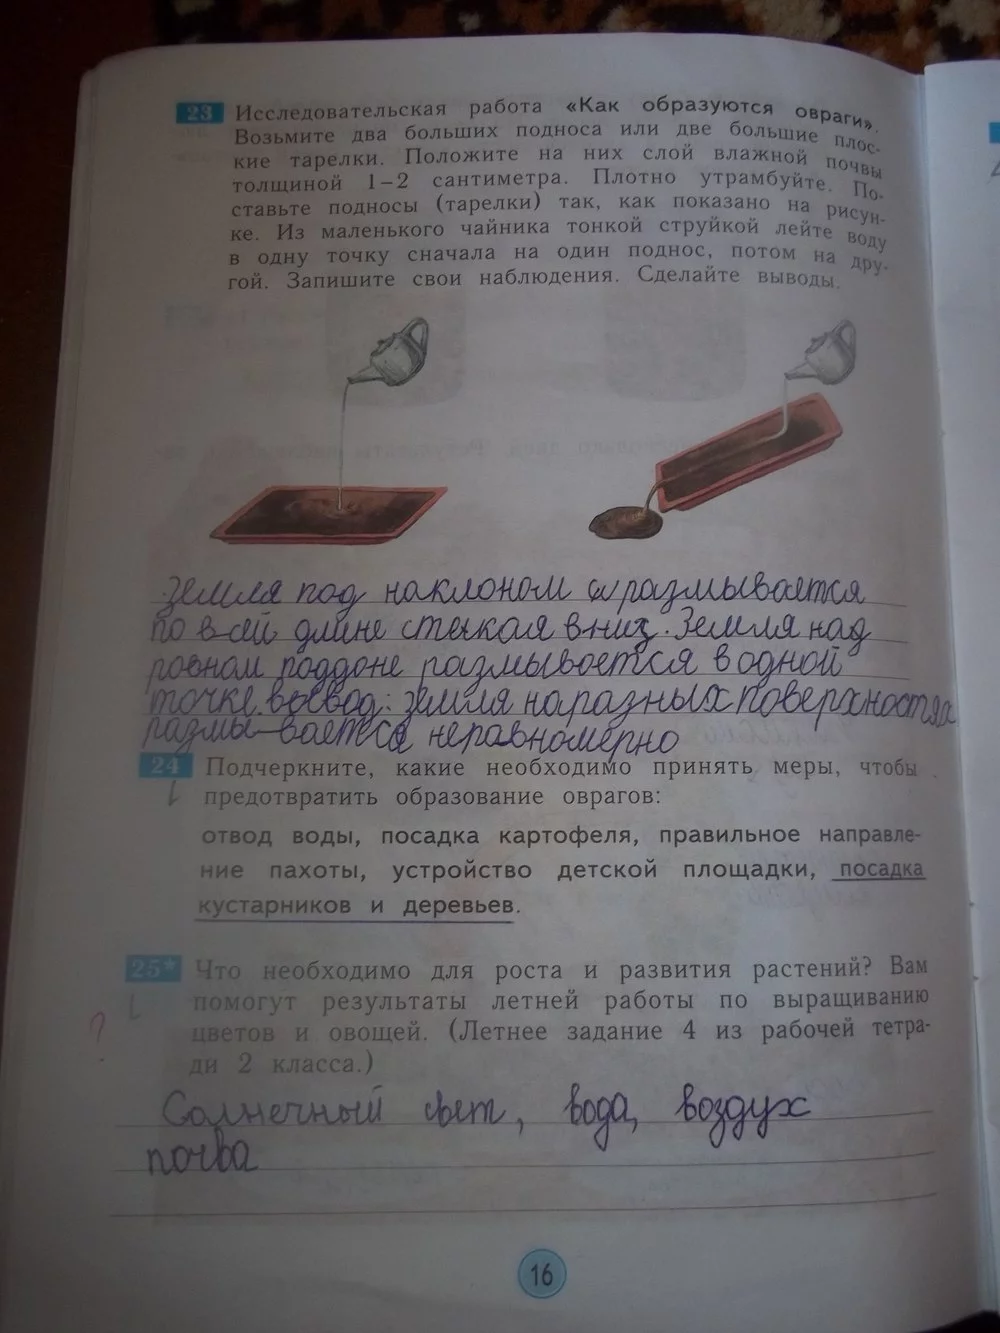 23 Исследовательская работа «Как образуются овраги».
Возьмите два больших подноса или две большие плос-
кие тарелки. Положите на них слой влажной почвы
толщиной 1–2 сантиметра. Плотно утрамбуйте. По-
ставьте подносы (тарелки) так, как показано на рисун-
ке. Из маленького чайника тонкой струйкой лейте воду
в одну точку сначала на один поднос, потом на дру-
гой. Запишите свои наблюдения. Сделайте выводы.
Земля под наклоном размывается
по всей длине стекая вниз. Земля над
ровном поддоне размывается в одной
точке. вывод: земля на разных поверхностях
размы-вается неравномерно
24 Подчеркните, какие необходимо принять меры, чтобы
предотвратить образование оврагов:
отвод воды, посадка картофеля, правильное направле-
ние пахоты, устройство детской площадки, посадка
кустарников и деревьев.
25* Что необходимо для роста и развития растений? Вам
помогут результаты летней работы по выращиванию
? цветов и овощей. (Летнее задание 4 из рабочей тетра-
ди 2 класса.)
Солнечный свет, вода, воздух
почва
16